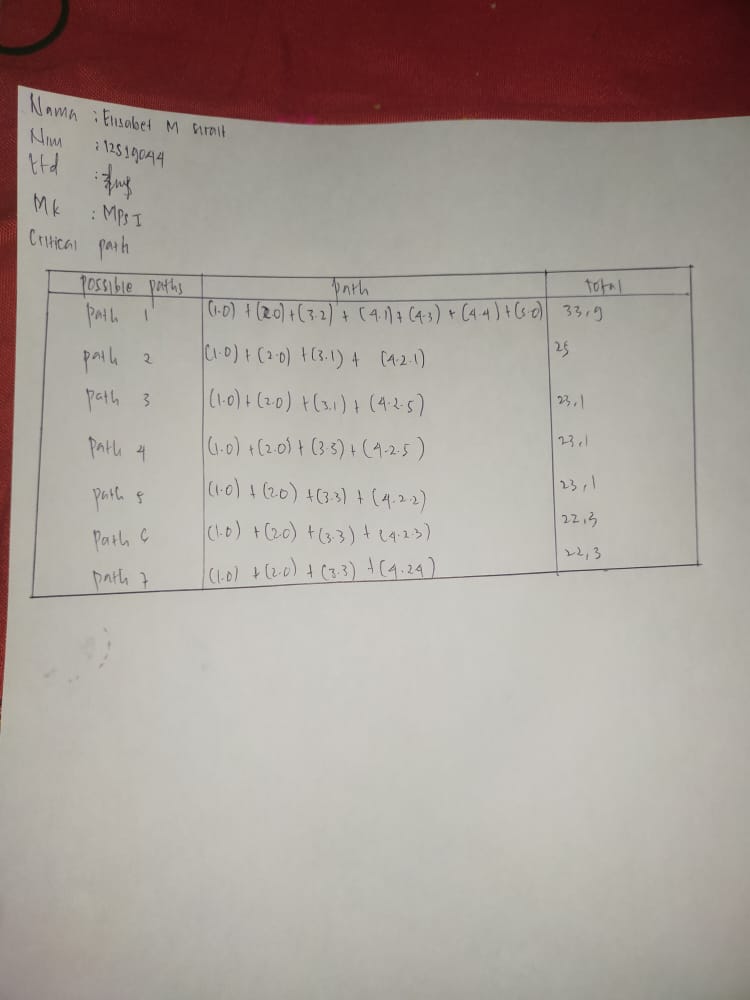 Nama : Elisabet M Sirait
Nim : 12S19044
ttd :
Mk : MPSI
Critical path
possible paths path total
path 1 (1.0) + (2.0) + (3.2) + (4.1) + (4.3) + (4.4) + (5.0) 33,9
path 2 (1.0) + (2.0) + (3.1) + (4.2.1) 25
path 3 (1.0) + (2.0) + (3.1) + (4.2.5) 23,1
path 4 (1.0) + (2.0) + (3.3) + (4.2.5) 23,1
path 5 (1.0) + (2.0) + (3.3) + (4.2.2) 23,1
path 6 (1.0) + (2.0) + (3.3) + (4.2.3) 22,3
path 7 (1.0) + (2.0) + (3.3) + (4.24) 22,3